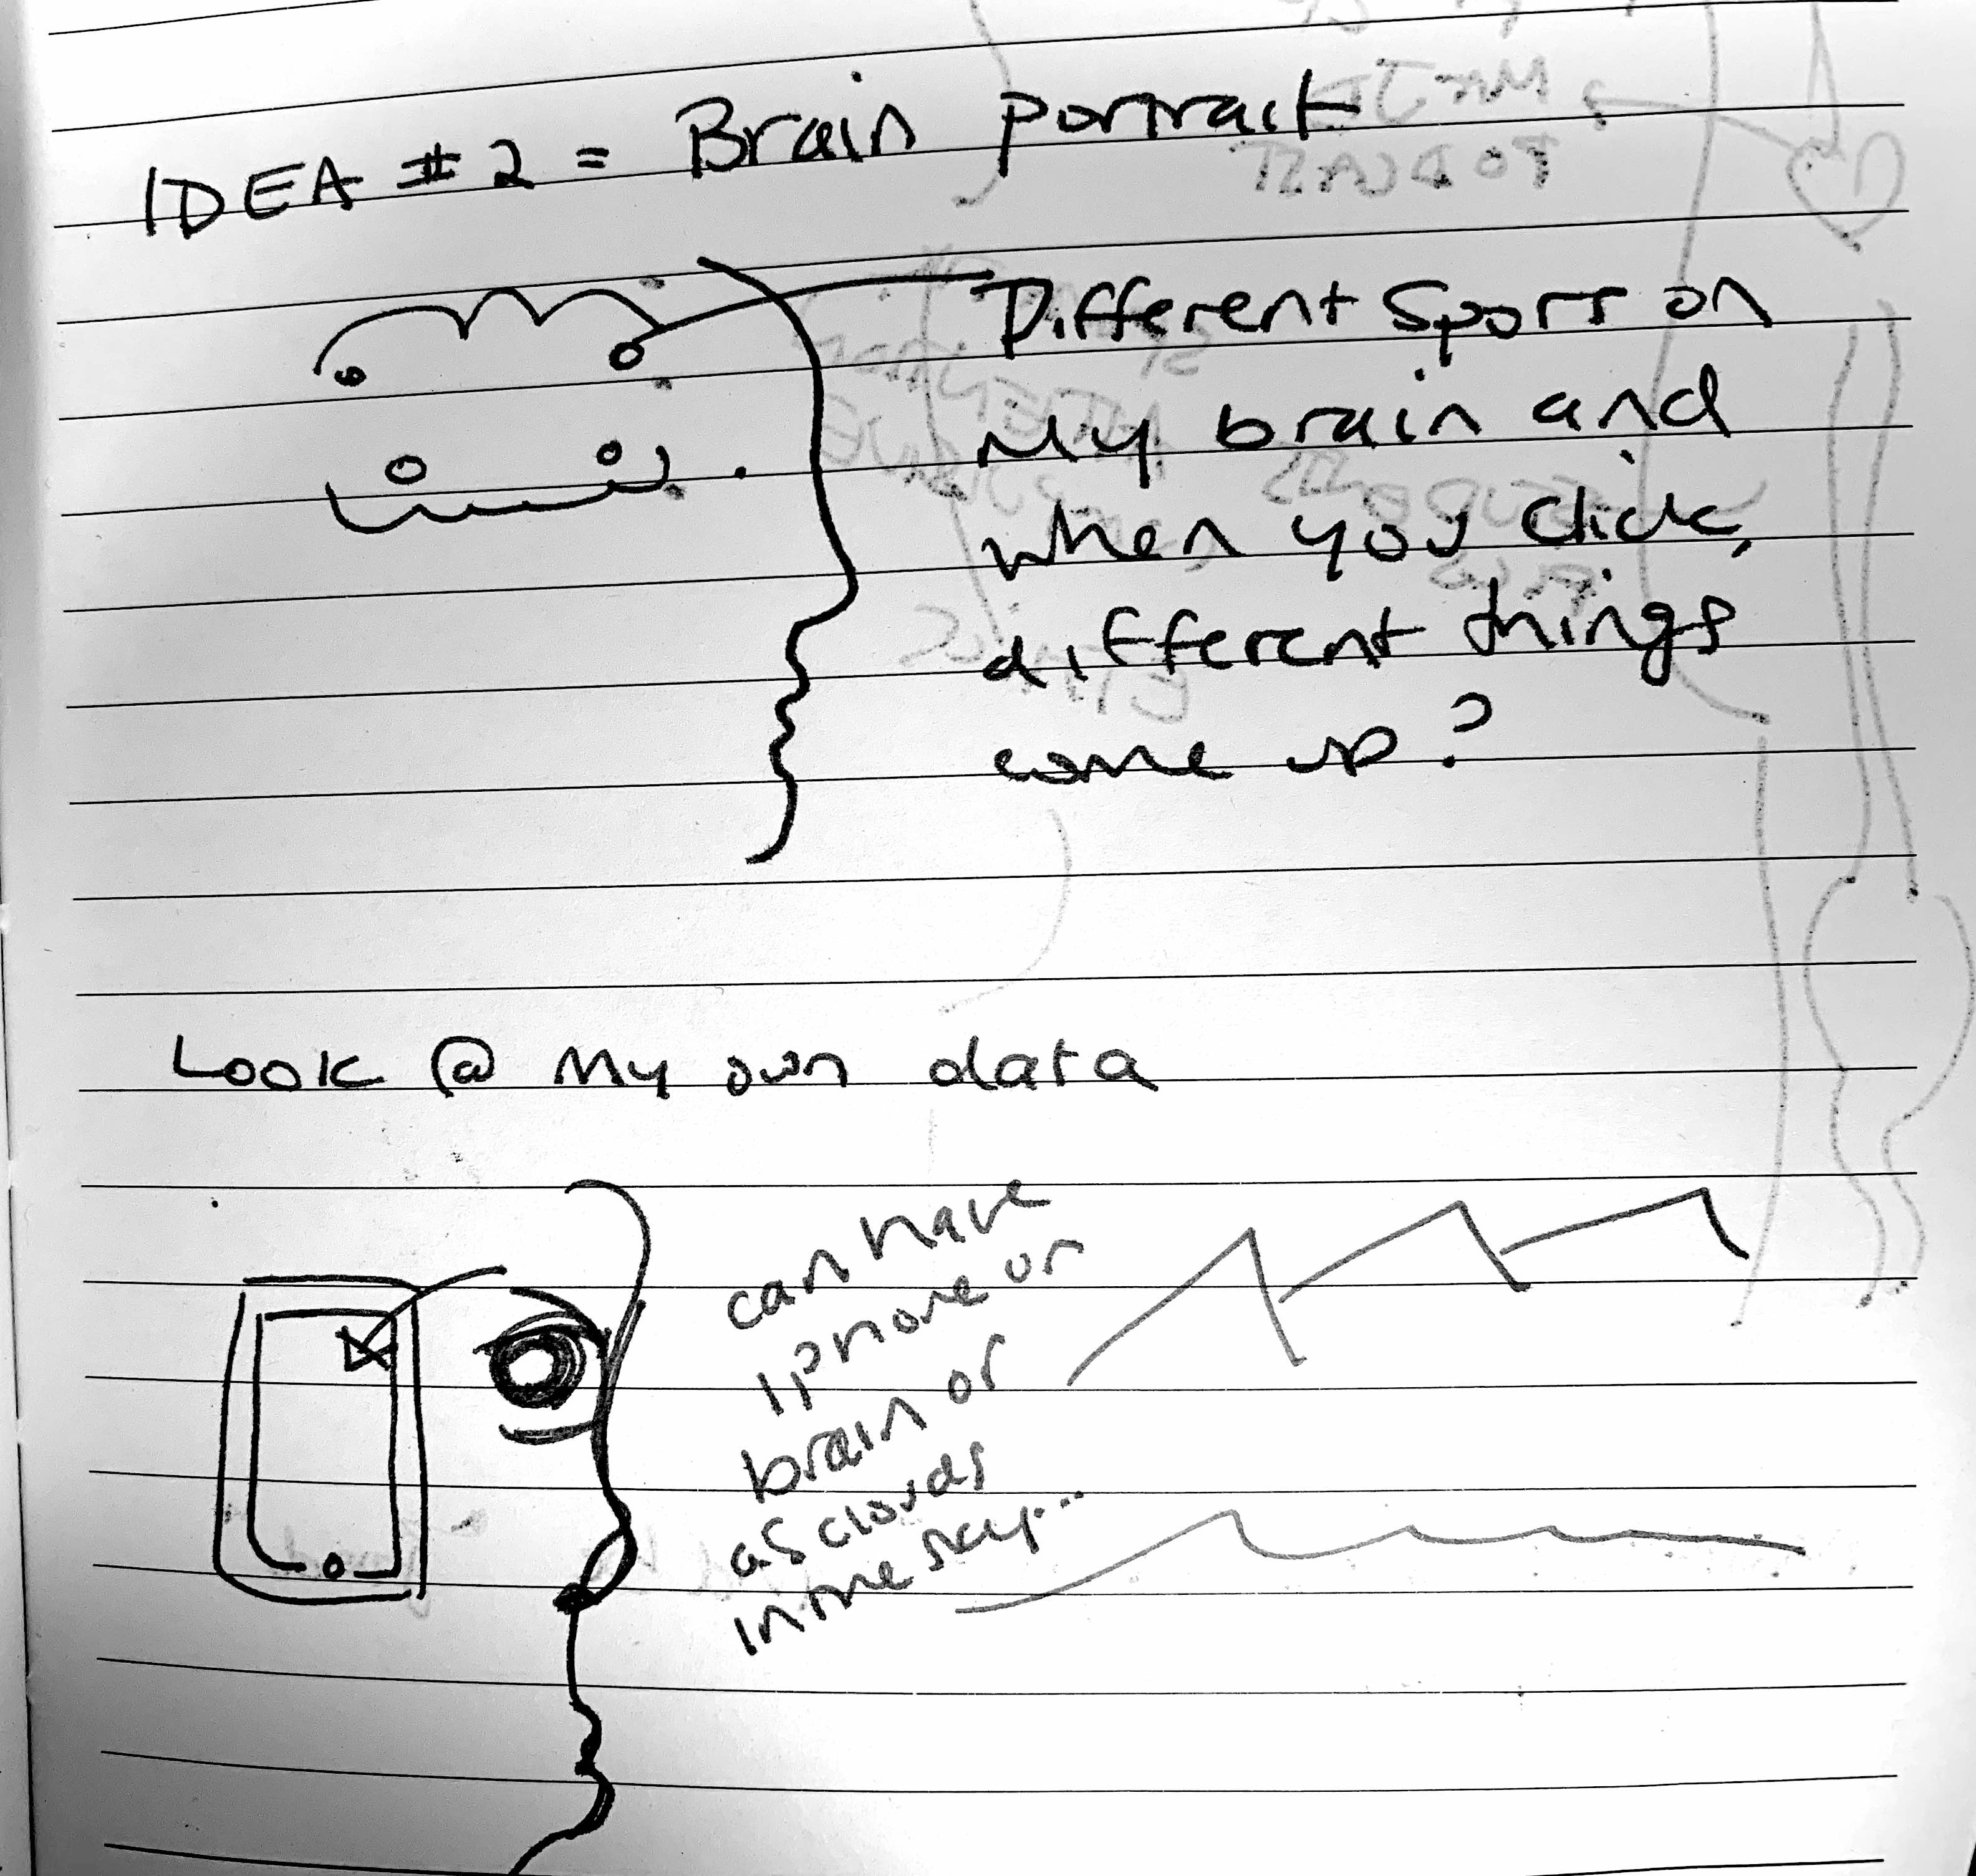 IDEA #2 = Brain portrait
Different Spots on
My brain and
when you click,
different things
come up?
Look @ My own data
can have
iphone or
brain or
as clouds
in the sky...